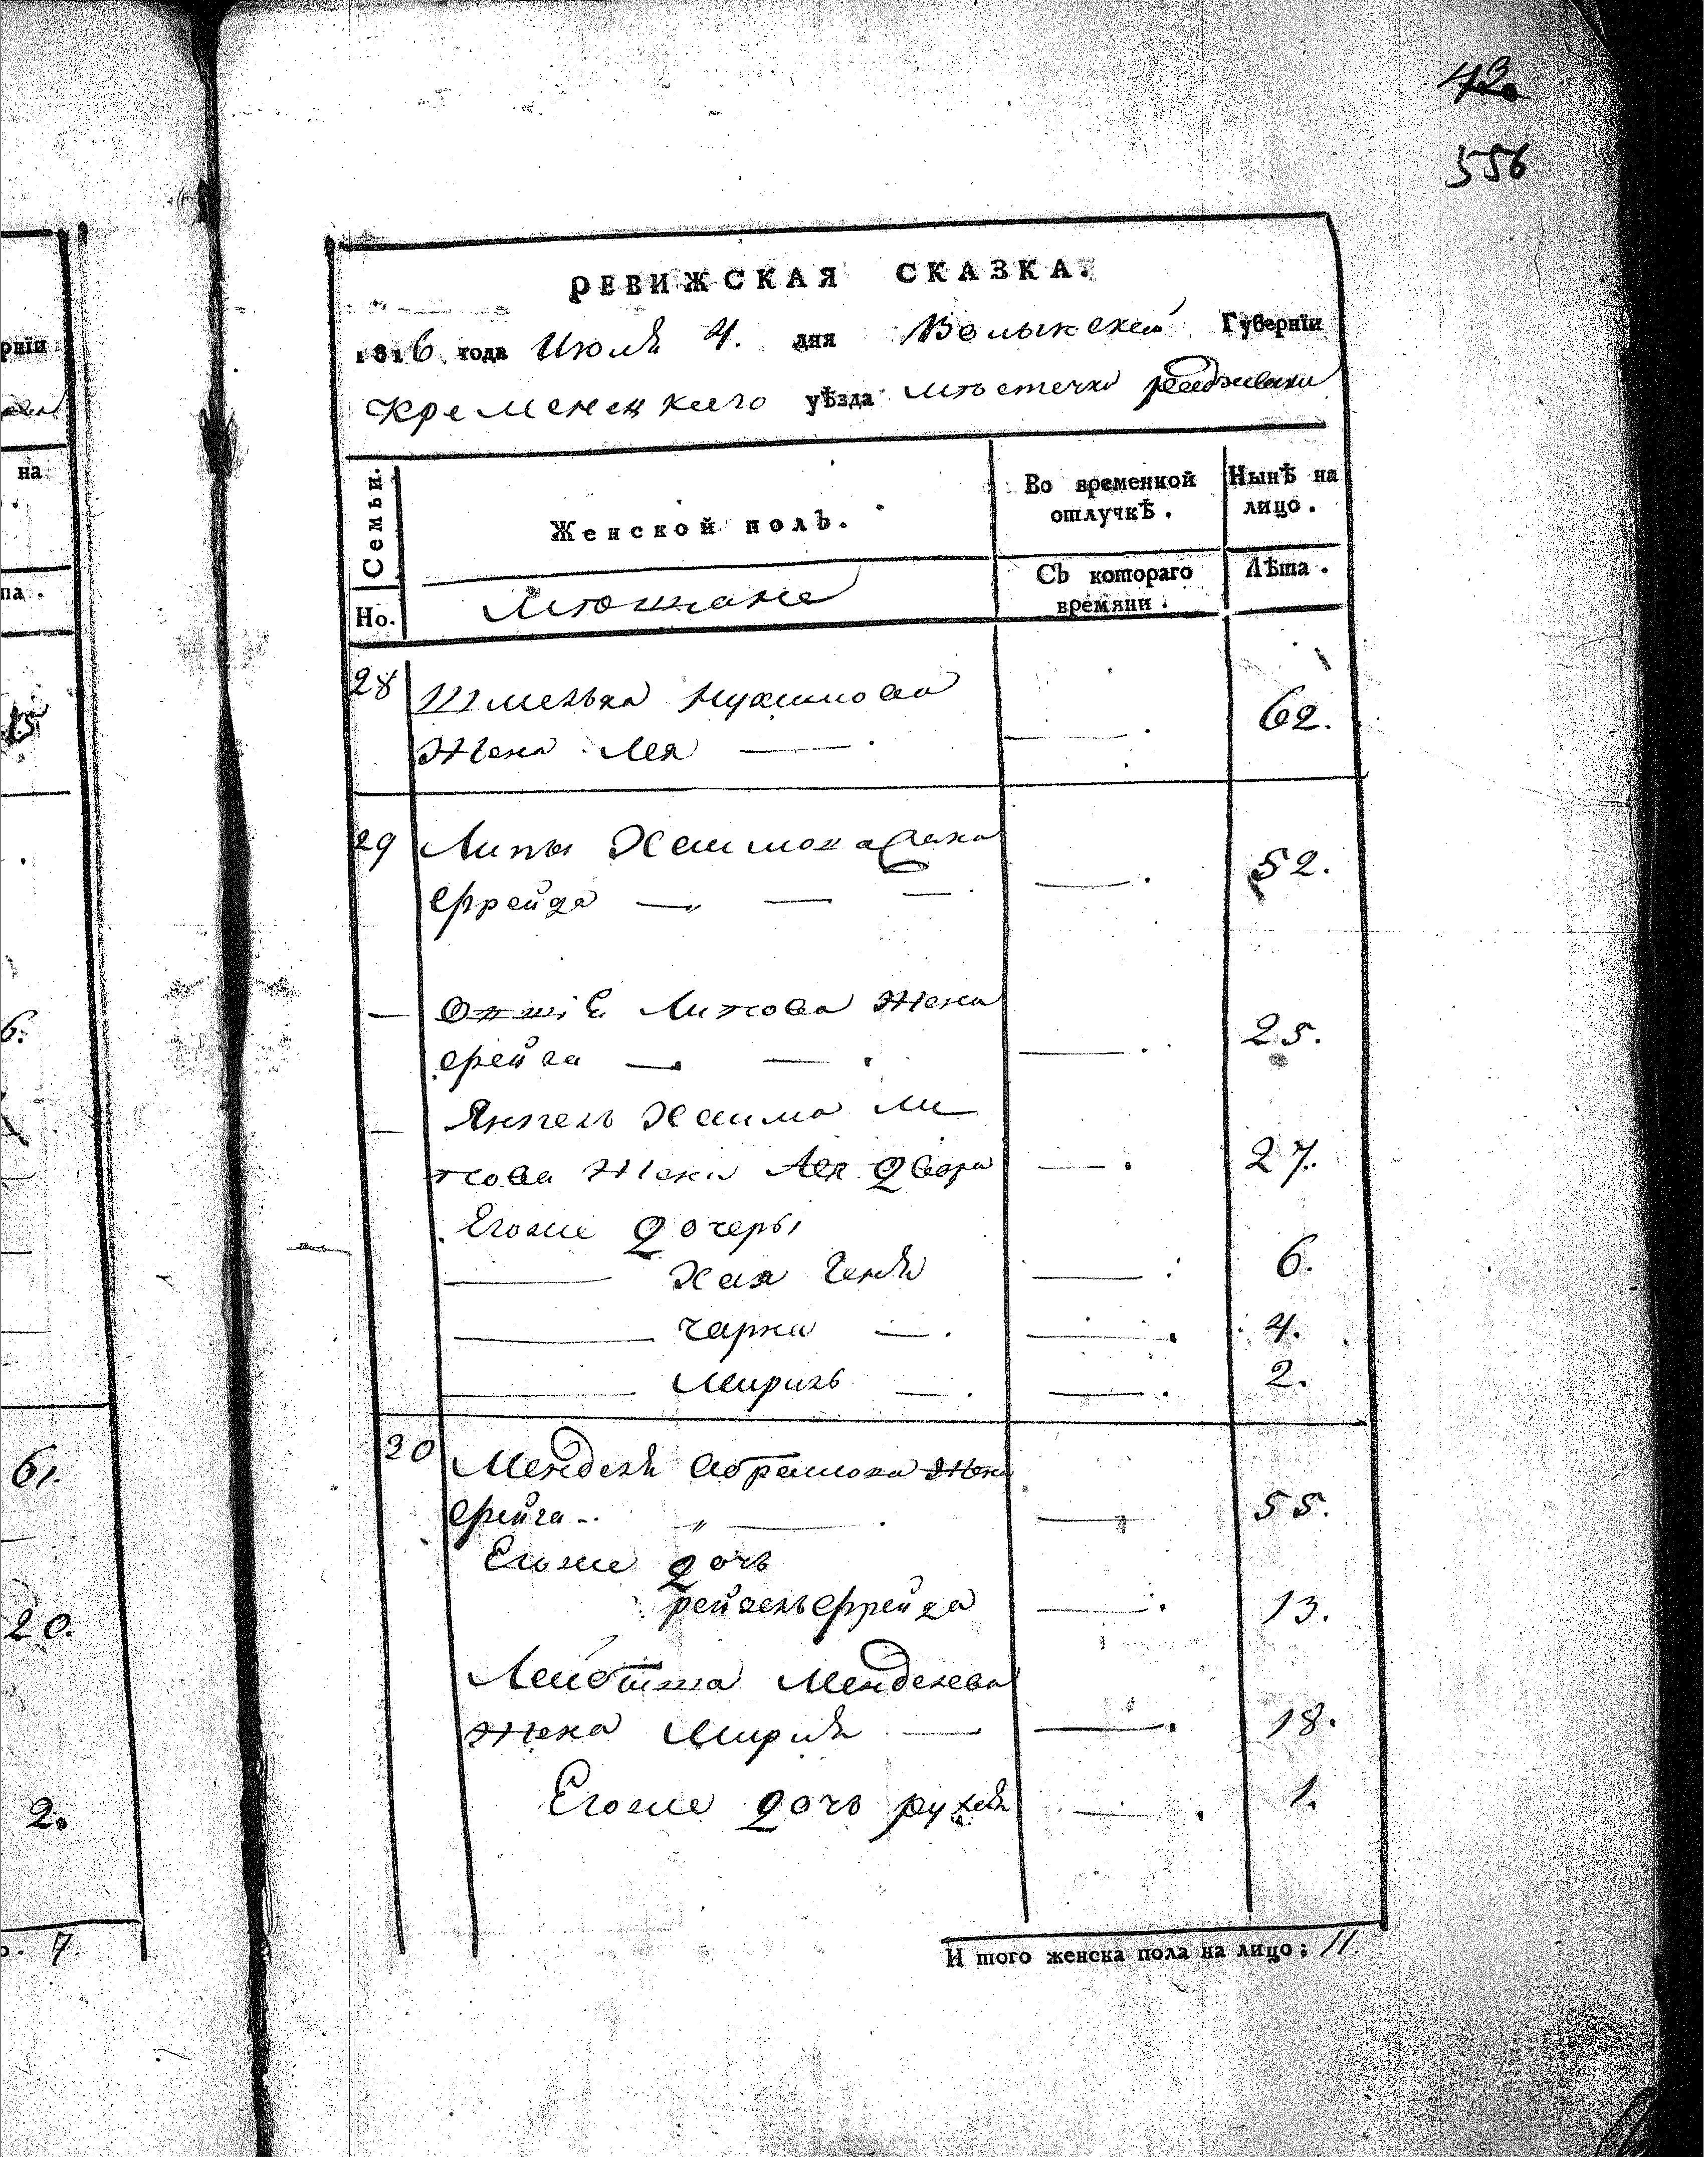 43.
556
РЕВИЖСКАЯ СКАЗКА.
1816 года Июля 4. дня Волынской Губернїи
Кременецкаго уѣзда мѣстечка
Семьи.
Но.
Женской полъ.
Во временной отлучкѣ.
Съ котораго времяни.
Нынѣ на лицо.
Лѣта.
Мѣщане
28 Шмелька Нухимова
Жена Лея — 62.
29 Липы Хаимова Жена
Фрейда — 52.
— Липова Жена
Фейга — 25.
— Янкель Хаима Ли
пова Жена Лея Двора — 27.
Егоже дочеры
Хая Геня — 6.
Чарна — 4.
Мириль — 2.
30 Менделя Абрамова Жена
Фейга — 55.
Егоже дочь
рейзель Фрейда — 13.
Лейбиша Менделева
Жена Миря — 18.
Егоже дочь рухля — 1.
И того женска пола на лицо: 11.
рнїи
на
па.
15
6.
61.
20.
2.
о. 7.